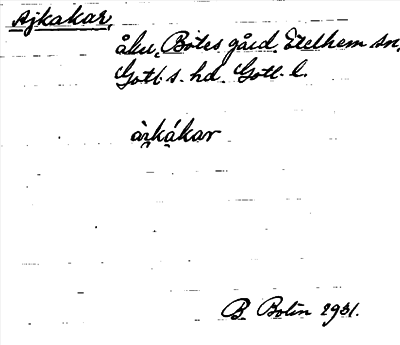 Ajkakar,
åku, Botes gård, Etelhem sn,
Gotl. s. hd. Gotl. l.
àɪkákar
B Bolin 1931.